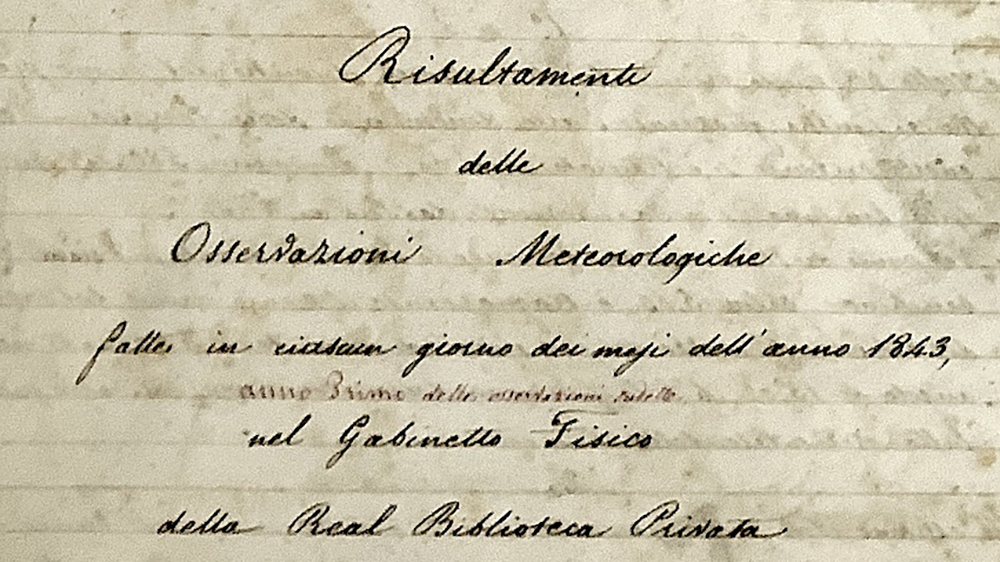 Risultamente
delle
Osservazioni Meteorologiche
fatte in ciascun giorno dei mesi dell'anno 1843,
anno Primo delle osservazioni sudette
nel Gabinetto Fisico
della Real Biblioteca Privata